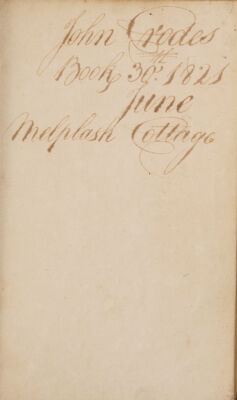 John Crodes
Book 30th. 1821
June
Melplash Cottage